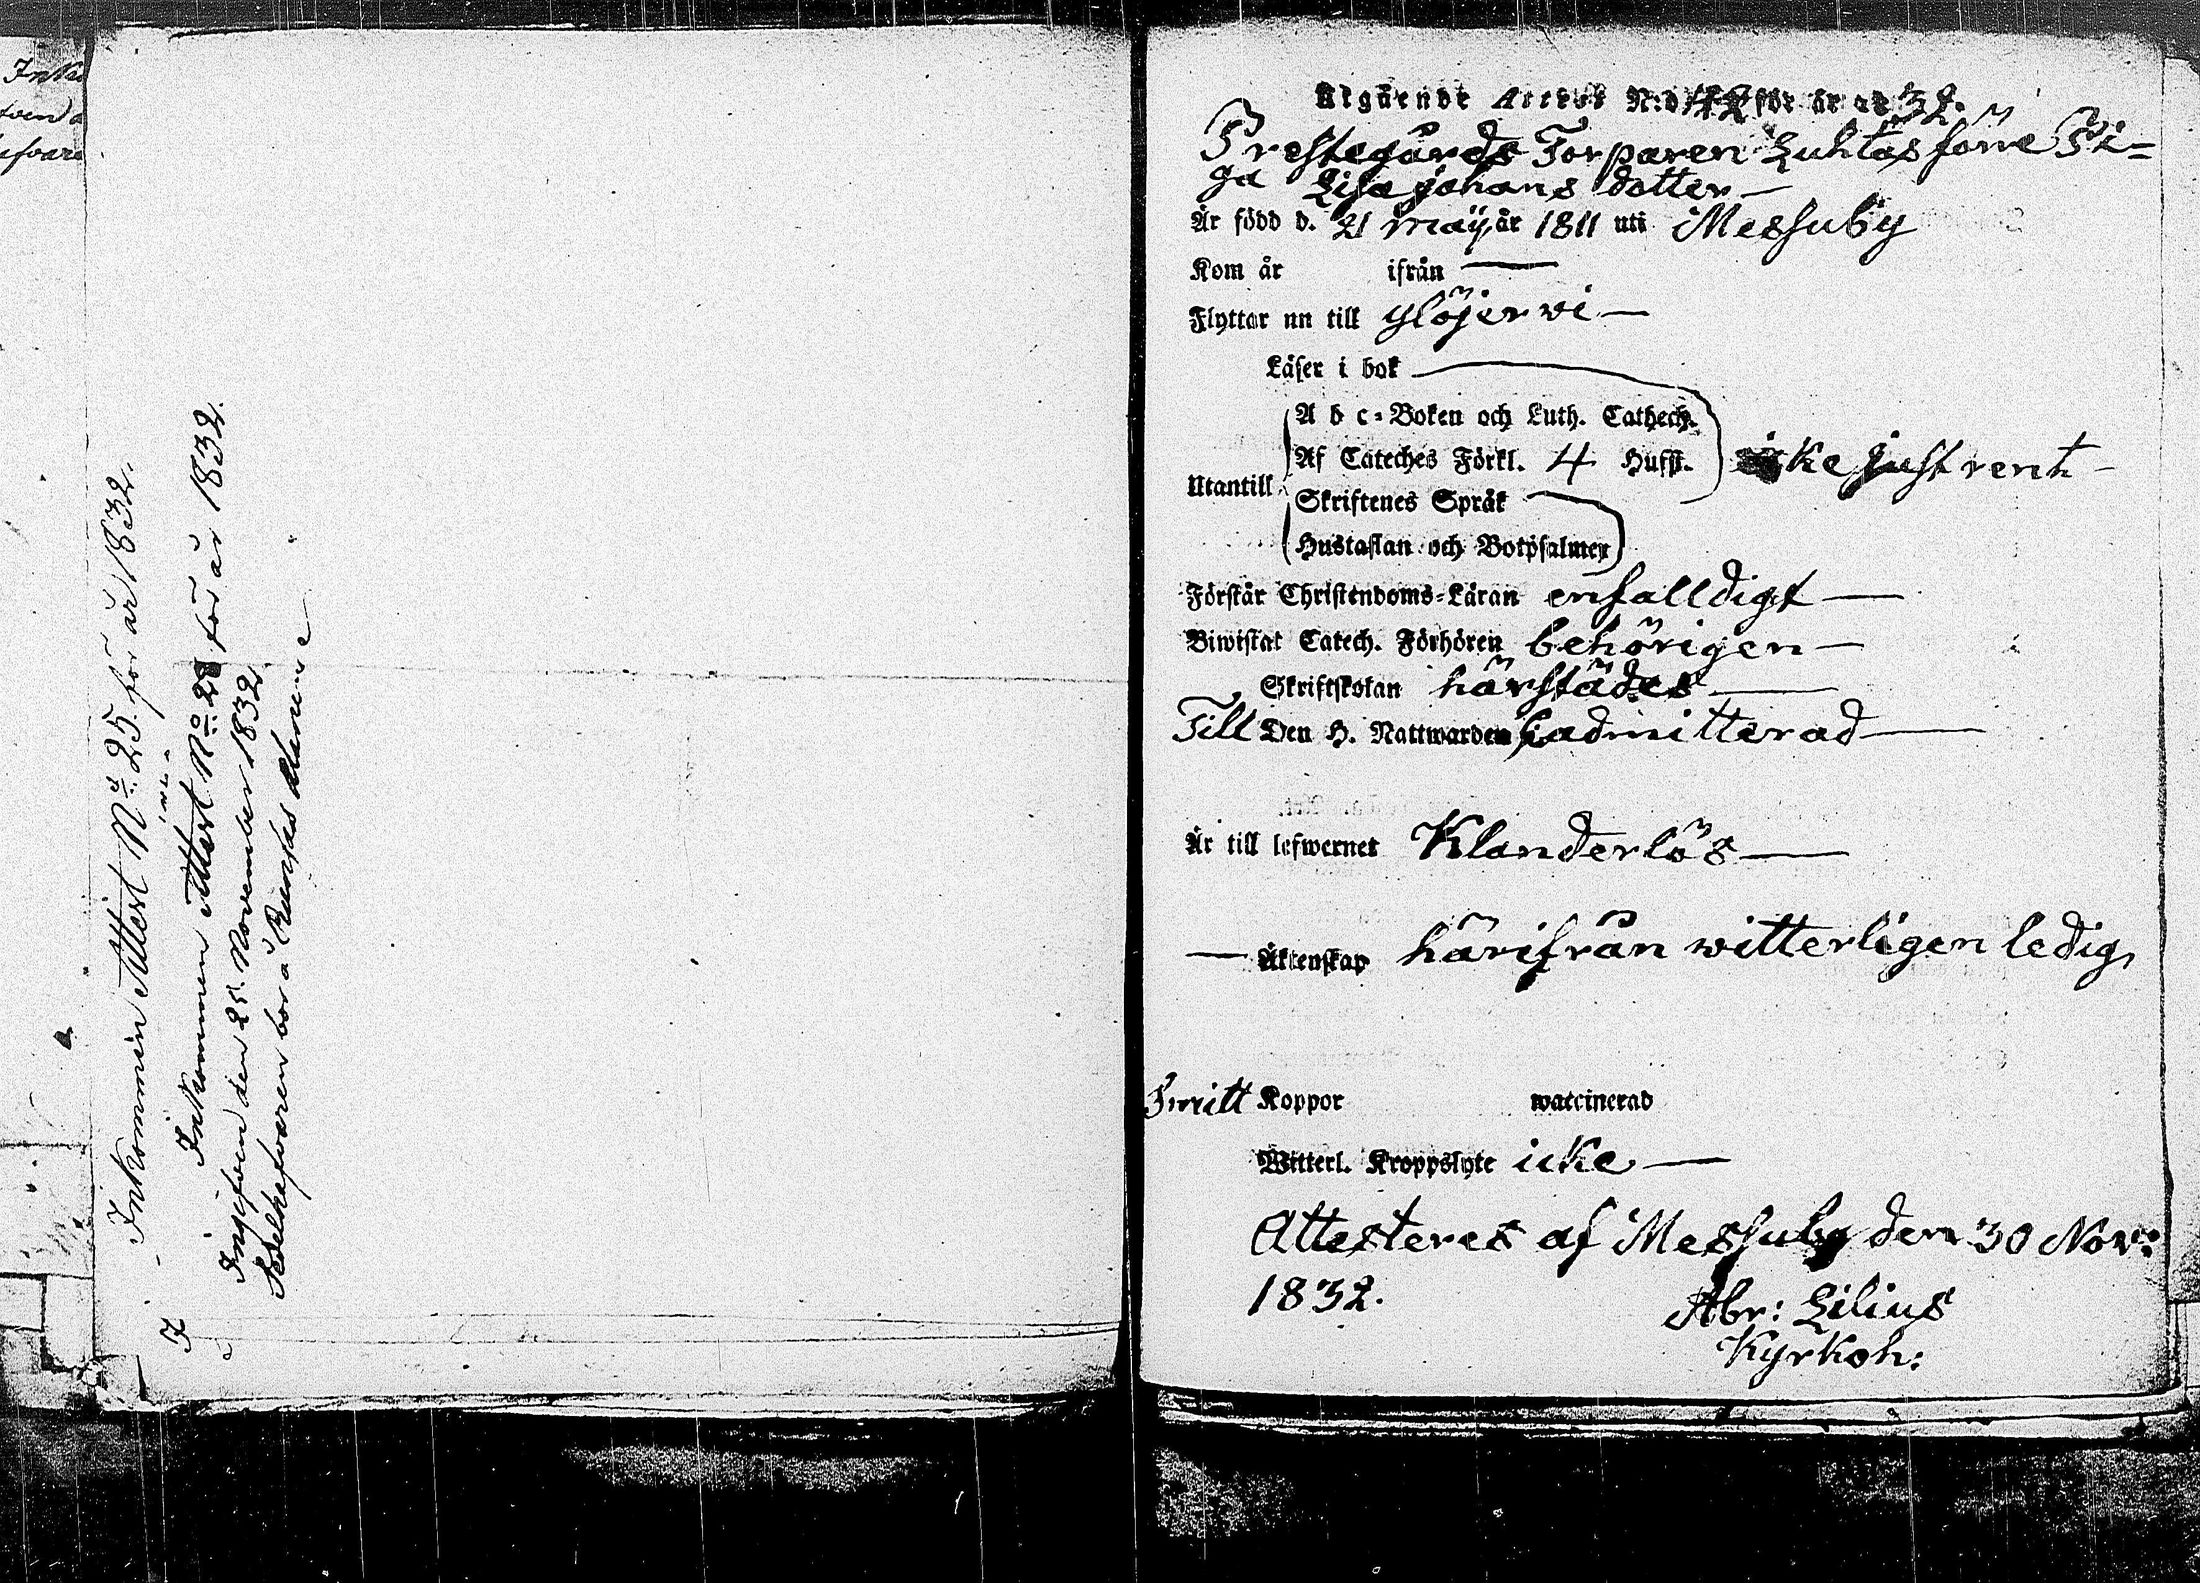 Inko
Inkommen Attest No 25. för år 1832.
Inkommen Attest No för år 1832.
Ingifven den 25. November 1832
Sedelhafvaren bor å
Utgående Attest N:o 42 för år 1832.
Prestegårds Torparen Luhtas förre Pi-
ga Lisa Johans dotter —
Är född d. 21 Maÿ år 1811 uti Messuby
Kom år ifrån —
Flyttar nu till Ylöjerwi —
Läser i bok
A b c-Boken och Luth. Cathech.
Af Cateches Förkl. 4 Hufst. icke just rent —
Utantill
Skriftenes Språk
Hustaflan och Botpsalmen
Förstår Christendoms-Läran enfalldigt —
Biwistat Catech. Förhören behörigen —
Skriftskolan härstädes —
Till Den H. Nattwarden admitterad —
Är till lefwernet Klanderlös —
— Äktenskap härifrån witterligen ledig,
Koppor waccinerad
Witterl. Kroppslyte icke —
Attesteres af Messuby den 30 Nov:
1832.
Abr: Lilius
Kyrkoh: